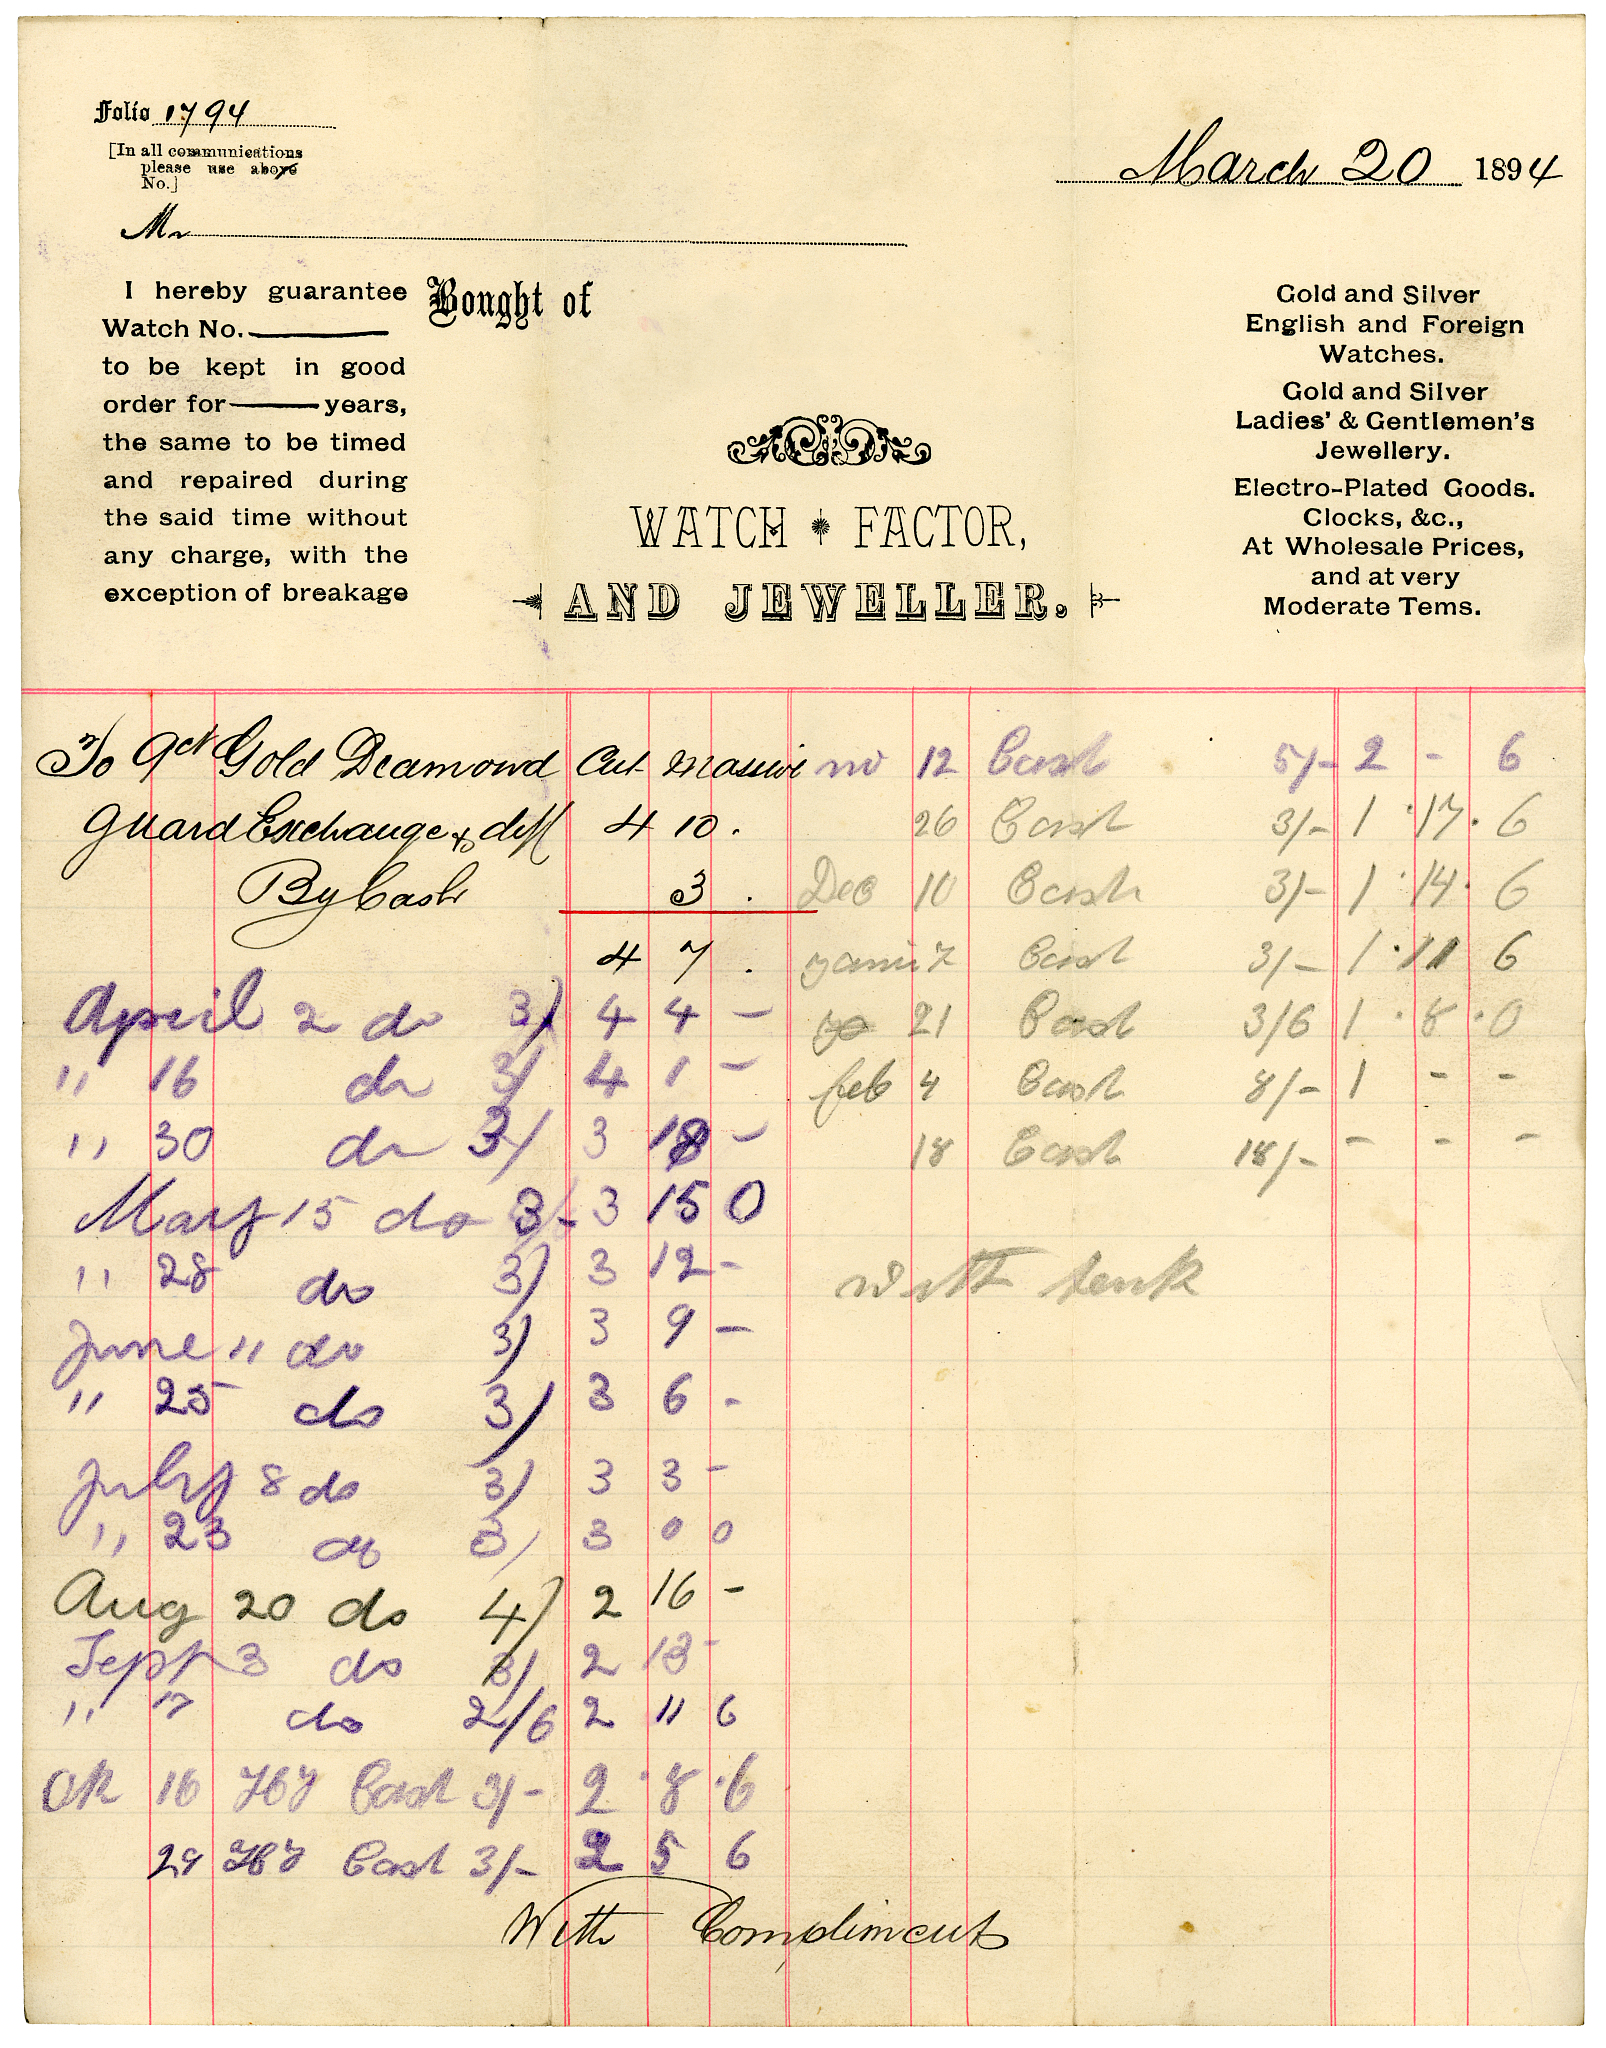 Folio 1794
[In all communications
please use above
No.]
March 20 1894
Mr
I hereby guarantee
Watch No.
to be kept in good
order for years,
the same to be timed
and repaired during
the said time without
any charge, with the
exception of breakage
Bought of
WATCH FACTOR,
AND JEWELLER.
Gold and Silver
English and Foreign
Watches.
Gold and Silver
Ladies' & Gentlemen's
Jewellery.
Electro-Plated Goods.
Clocks, &c.,
At Wholesale Prices,
and at very
Moderate Tems.
To 9ct Gold Deamond Cut Massive
Guard Exchange & diff 4 10 .
By Cash 3 .
4 7 .
April 2 do 3/ 4 4 -
" 16 do 3/ 4 1 -
" 30 do 3/ 3 18 -
May 15 do 3/- 3 15 0
" 28 do 3/ 3 12 -
June 11 do 3/ 3 9 -
" 25 do 3/ 3 6 -
July 8 do 3/ 3 3 -
" 23 do 3/ 3 0 0
Aug 20 do 4/ 2 16 -
Sept 3 do 3/ 2 13 -
" 17 do 2/6 2 11 6
16 Cash 3/- 2 · 8 · 6
29 Cash 3/- 2 5 6
With Compliments
no 12 Cash 5/- 2 - 6
26 Cash 3/- 1 · 17 · 6
Dec 10 Cash 3/- 1 · 14 · 6
7 Cash 3/- 1 · 11 6
21 Cash 3/6 1 · 8 · 0
feb 4 Cash 8/- 1 - -
18 Cash 18/- - - -